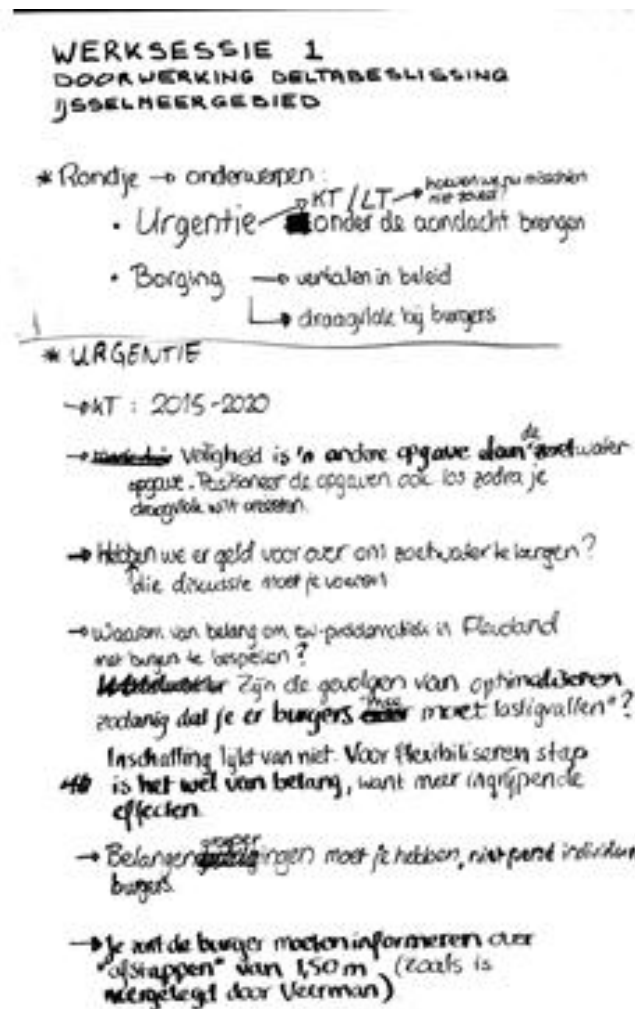 WERKSESSIE 1
DOORWERKING DELTABESLISSING
IJSSELMEERGEBIED
* Rondje → onderwerpen :
hoeven we nu misschien
niet zoveel?
• Urgentie → KT / LT →
onder de aandacht brengen
• Borging → vertalen in beleid
→ draagvlak bij burgers
* URGENTIE
→ KT : 2015-2020
→ Veiligheid is 'n andere opgave dan de zoetwater
opgave. Positioneer de opgaven ook los zodra je
draagvlak wilt
→ Hebben we er geld voor over om zoetwater te bergen?
die discussie moet je voeren
→ Waarom van belang om zw-problematiek in Flevoland
met burgers te bespreken?
Zijn de gevolgen van optimaliseren
zodanig dat je er burgers mee moet lastigvallen"?
Inschatting lijkt van niet. Voor flexibiliseren stap
is het wel van belang, want meer ingrijpende
effecten.
→ Belangengroeperingen moet je hebben, niet perse individuele
burgers.
→ Je zult de burger moeten informeren over
"afstappen" van 1,50 m (zoals is
neergelegd door Veerman)